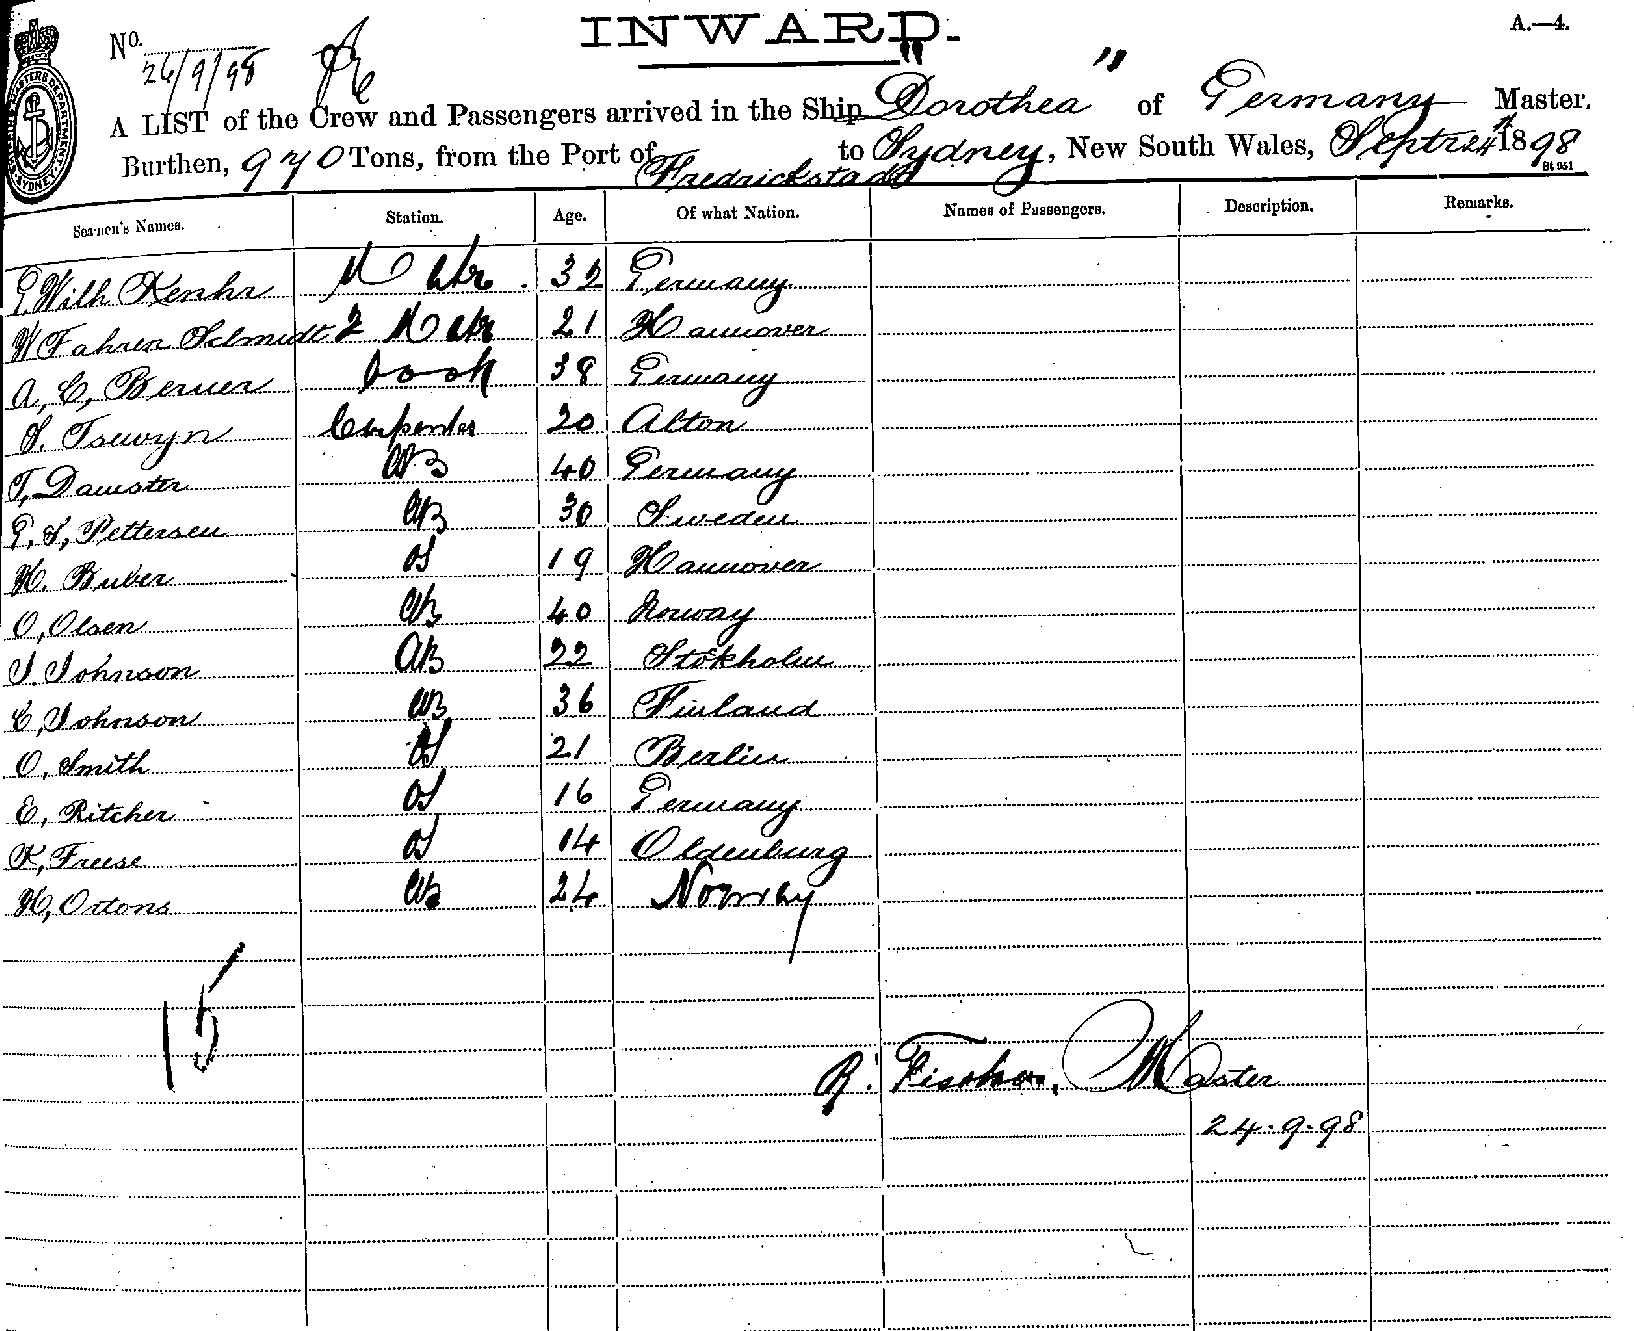 INWARD.
A.—4.
No.
26/9/98
A LIST of the Crew and Passengers arrived in the Ship "Dorothea" of Germany Master.
Burthen, 970 Tons, from the Port of Fredrickstadt to Sydney, New South Wales, Septr 24th 1898
Seamen's Names. Station. Age. Of what Nation. Names of Passengers. Description. Remarks.
G Wilh Kenhr Mate 32 Germany
W Fahren Schmidt 2 Mate 21 Hannover
A, C, Berner Cook 38 Germany
S. Tsuwyn Carpenter 20 Alton
T, Damster AB 40 Germany
G, S, Pettersen AB 30 Sweden
H. Buber OS 19 Hannover
O, Olsen AB 40 Norway
J. Johnson AB 22 Stokholm
C, Johnson AB 36 Finland
O, Smith OS 21 Berlin
E, Ritcher OS 16 Germany
K, Freese OS 14 Oldenburg
H, Ortons AB 24 Norway
15
R. Fischer, Master
24.9.98